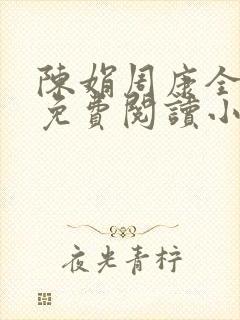 陳娟周康全
免費閱讀小
夜光青柠